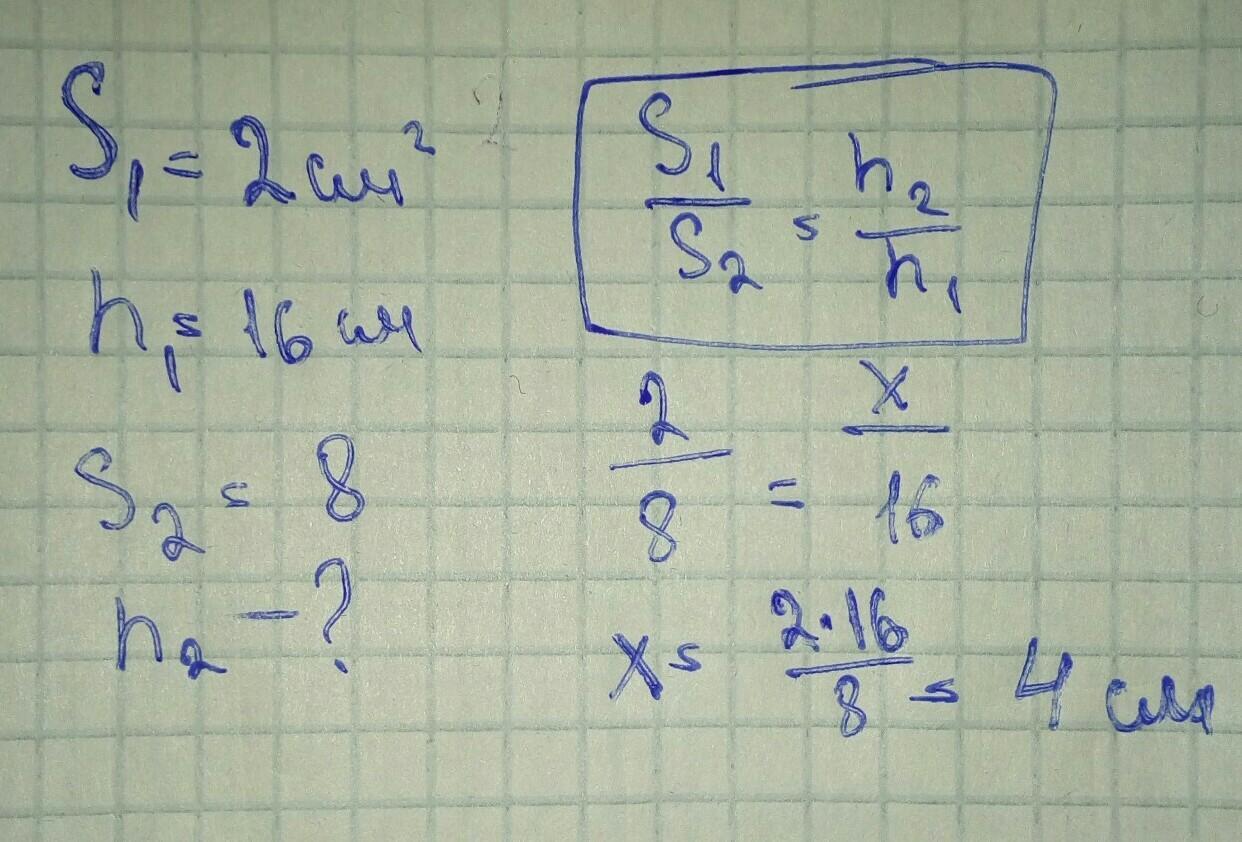 S₁ = 2 см²
h₁ = 16 см
S₂ = 8
h₂ - ?
S₁/S₂ = h₂/h₁
2/8 = x/16
x = 2·16/8 = 4 см